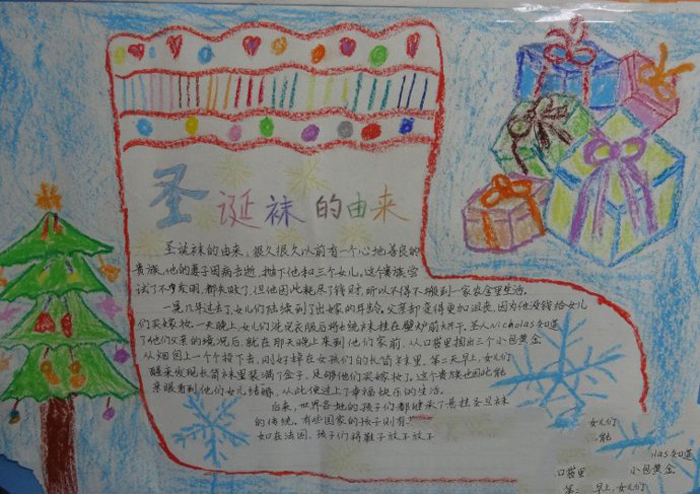 圣诞袜的由来
圣诞袜的由来，很久很久以前有一个心地善良的
贵族，他的妻子因病去逝，抛下他和三个女儿。这个贵族尝
试了不少发明，都失败了，但他因此耗尽了钱财，所以不得不搬到一家农舍里生活。
一晃几年过去，女儿们陆续到了出嫁的年龄。父亲却变得更加沮丧，因为他没钱给女儿
们买嫁妆。一天晚上，女儿们洗完衣服后将长统袜挂在壁炉前烘干。圣人Nicholas知道
了他们父亲的境况后，就在那天晚上来到他们家前，从口袋里掏出三个小包黄金
从烟囱上一个个投下去，刚好掉在女孩们的长筒袜里。第二天早上，女儿们
醒来发现长筒袜里装满了金子，足够他们买嫁妆了。这个贵族也因此能
亲眼看到他们女儿结婚，从此便过上了幸福快乐的生活。
后来，世界各地的孩子们都继承了悬挂圣旦袜
的传统。有些国家的孩子则有
如在法国，孩子们将鞋子放
女儿们
能
olas知道
口袋里 小包黄金
第二 早上，女儿们